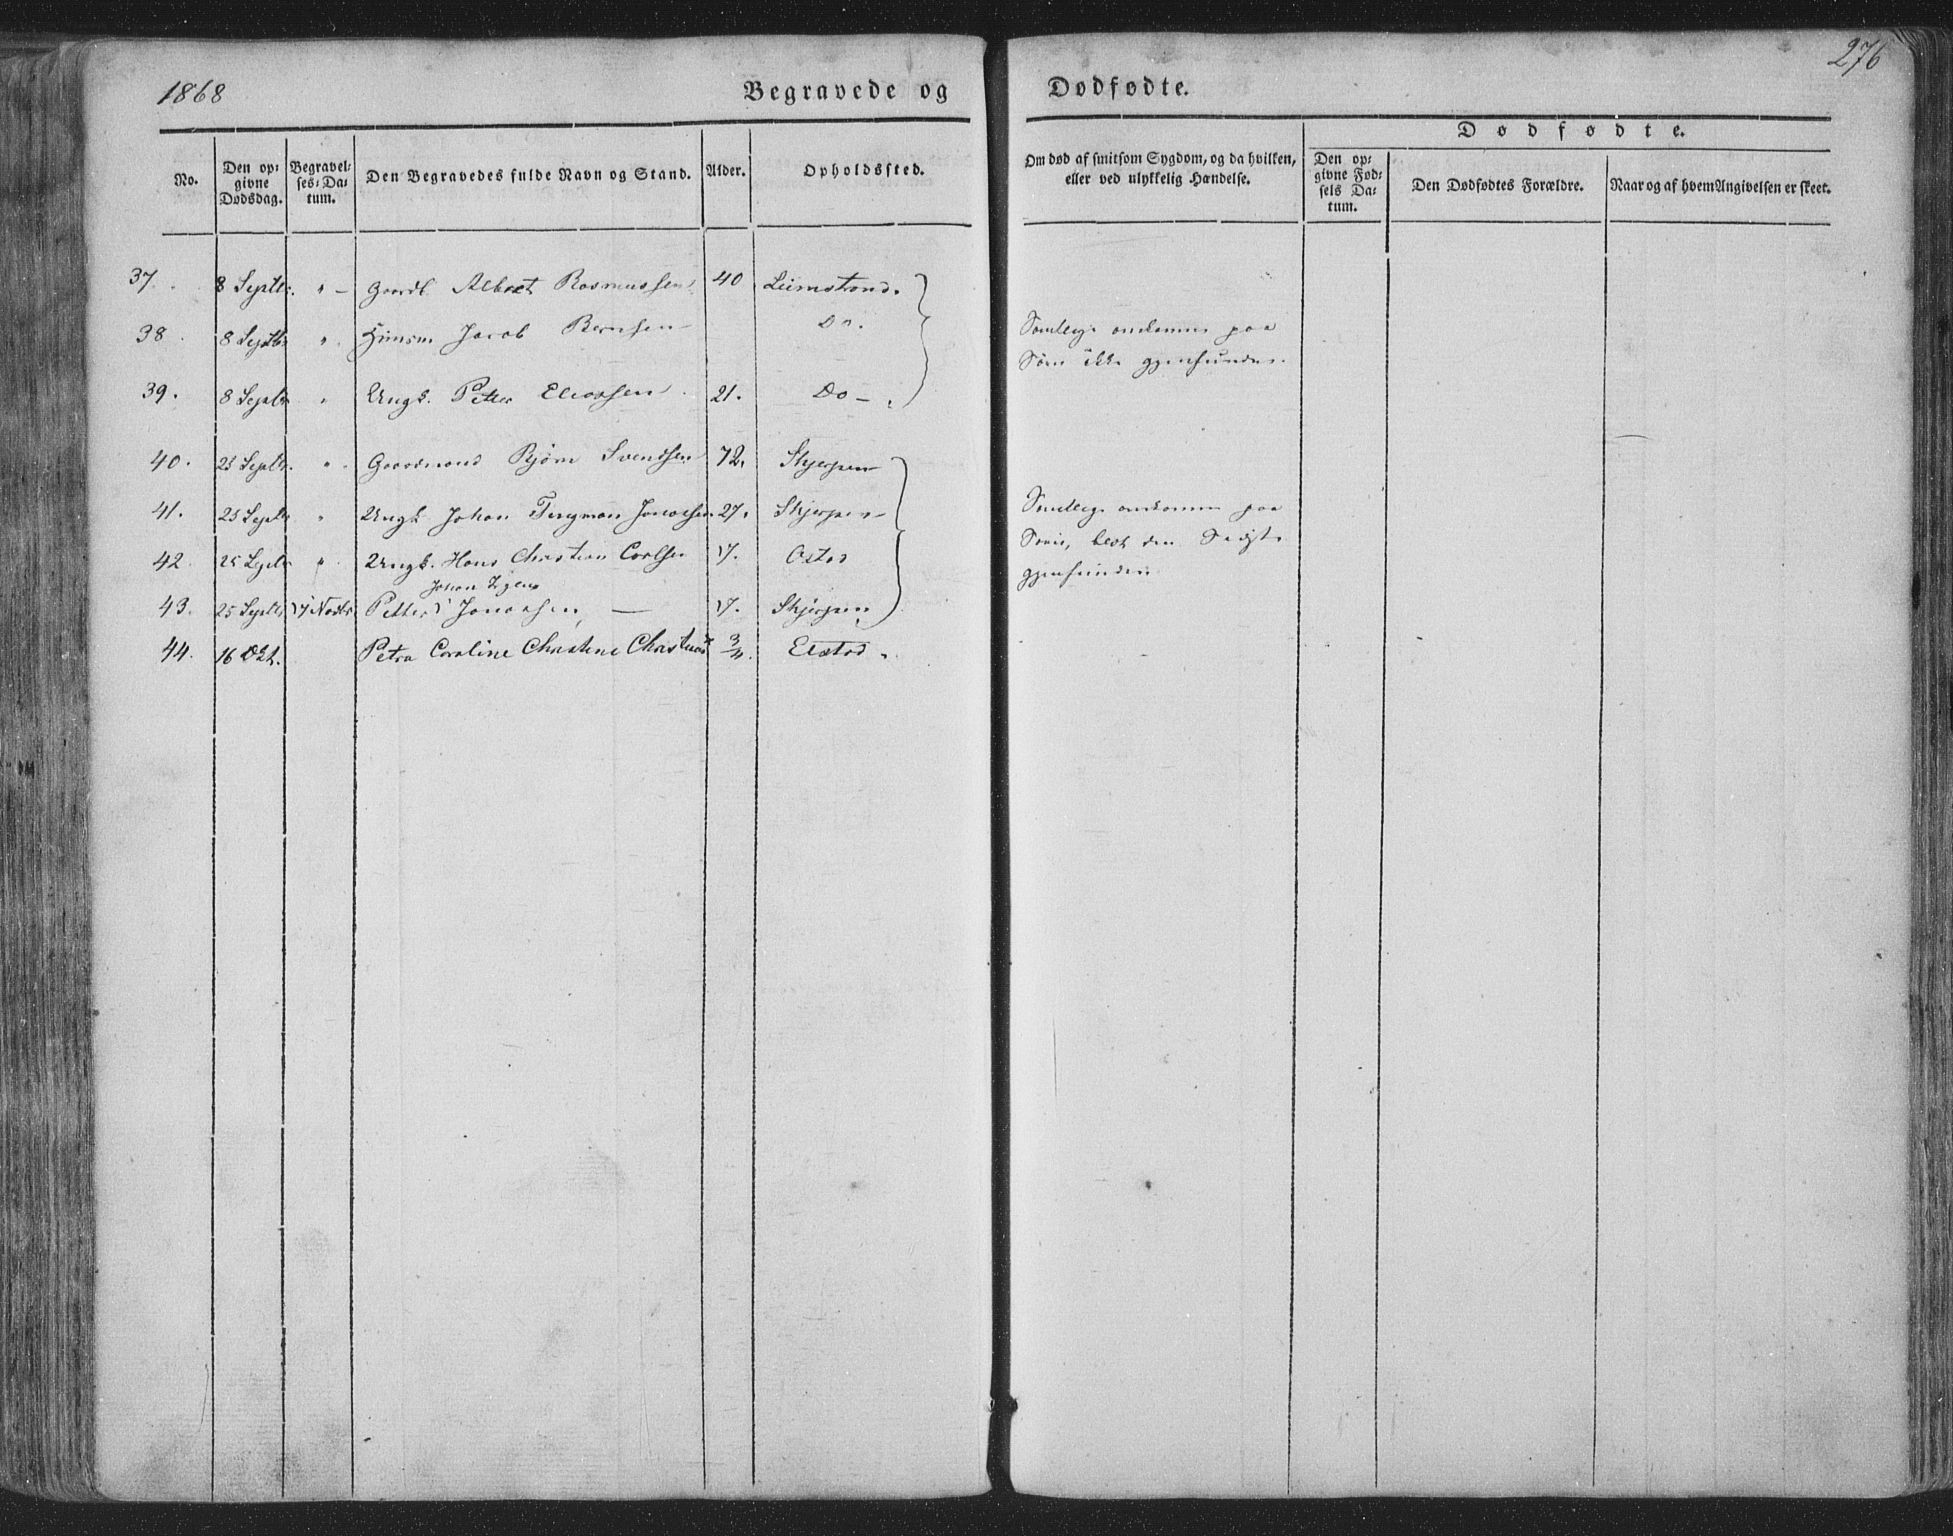 276
1868
Begravede og Dødfødte.
Dødfødte.
No. Den opgivne Dødsdag. Begravelses-Datum. Den Begravedes fulde Navn og Stand. Alder. Opholdssted. Om død af smitsom Sygdom, og da hvilken, eller ved ulykkelig Hændelse. Den opgivne Fødsels Datum. Den Dødfødtes Forældre. Naar og af hvem Angivelsen er skeet.
37. 8 Septbr. " - Gaardb. Albert Rasmussen 40 Leimstrand.
38. 8 Septbr " Jacob Bernsen Do.
Samtlige omkomne paa
Søen ikke gjenfundne.
39. 8 Septbr " Ungk. Petter Eliassen 21. Do -
40. 25 Septbr. " Gaardmand Bjørn Svendsen 72. Skjerpen
41. 25 Septbr " Ungk. Johan Jonassen 27. Skjerpen
Samtlige omkomne paa
42. 25 Septbr " Ungk. Hans Christian Carlsen 17.
Søen, den
gjenfunden
Johan
43. 25 Septbr Petter Jonassen, — 17. Skjerpen
44. 16 Oct. Petra Caroline Christine 3/4. Elstad.